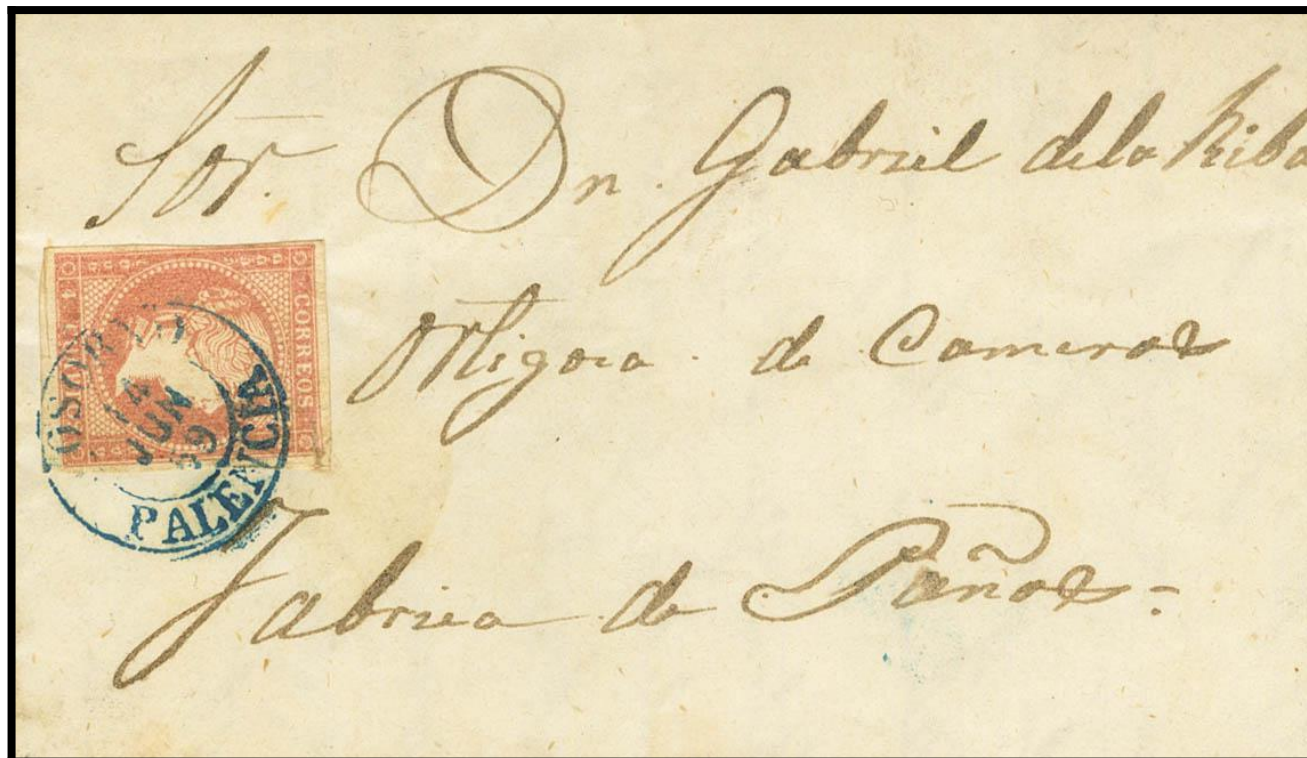 Sor. Dn. Gabriel dela Riba
Ortigosa de Cameros
Fabrica de Paños=
CORREOS
OSORNO
14
JUN
59
PALENCIA